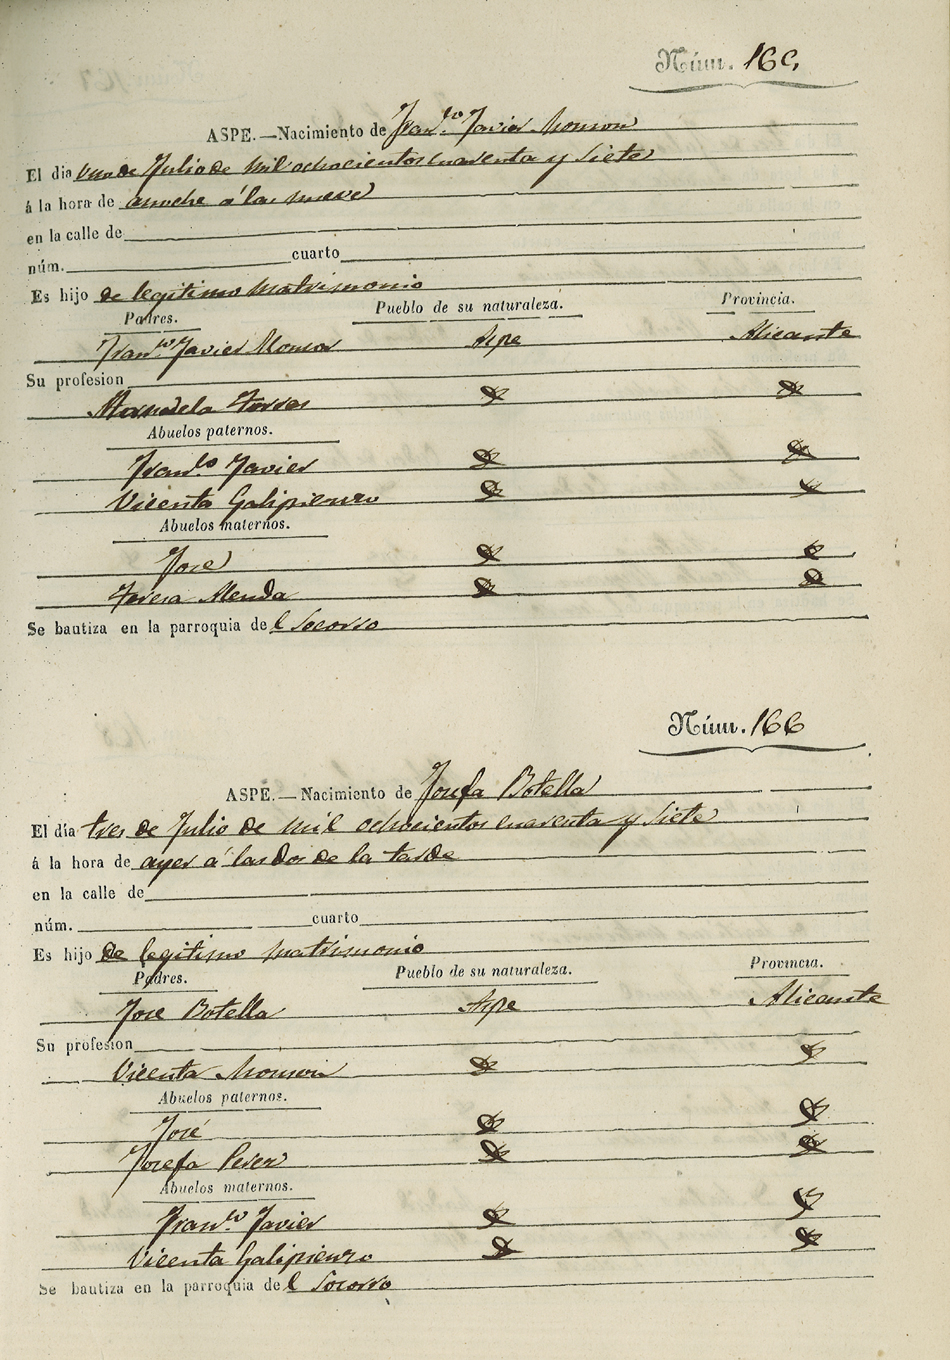 Núm. 165
ASPE.—Nacimiento de Franco Javier Monzon
El dia uno de Julio de mil ochocientos cuarenta y siete
á la hora de anoche á las nueve
en la calle de
núm. cuarto
Es hijo de legitimo matrimonio
Padres. Pueblo de su naturaleza. Provincia.
Franco Javier Monzon Aspe Alicante
Su profesion
Manuela Torres
Abuelos paternos.
Franco Javier
Vicenta Galipienzo
Abuelos maternos.
José
Teresa
Se bautiza en la parroquia del Socorro
Núm. 166
ASPE.—Nacimiento de Josefa Botella
El día tres de Julio de mil ochocientos cuarenta y siete
á la hora de ayer á las dos de la tarde
en la calle de
núm. cuarto
Es hijo de legitimo matrimonio
Padres. Pueblo de su naturaleza. Provincia.
José Botella Aspe Alicante
Su profesion
Vicenta Monzon
Abuelos paternos.
José
Josefa Perez
Abuelos maternos.
Franco Javier
Vicenta Galipienzo
Se bautiza en la parroquia del Socorro